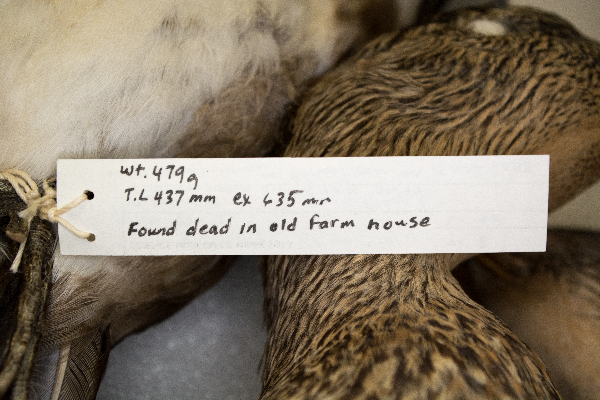 Wt. 479g
T.L 437mm ex 635mm
Found dead in old farm house